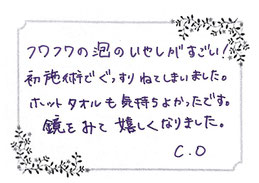 フワフワの泡のいやしがすごい!
初施術でぐっすりねてしまいました。
ホットタオルも気持ちよかったです。
鏡をみて嬉しくなりました。
C.O